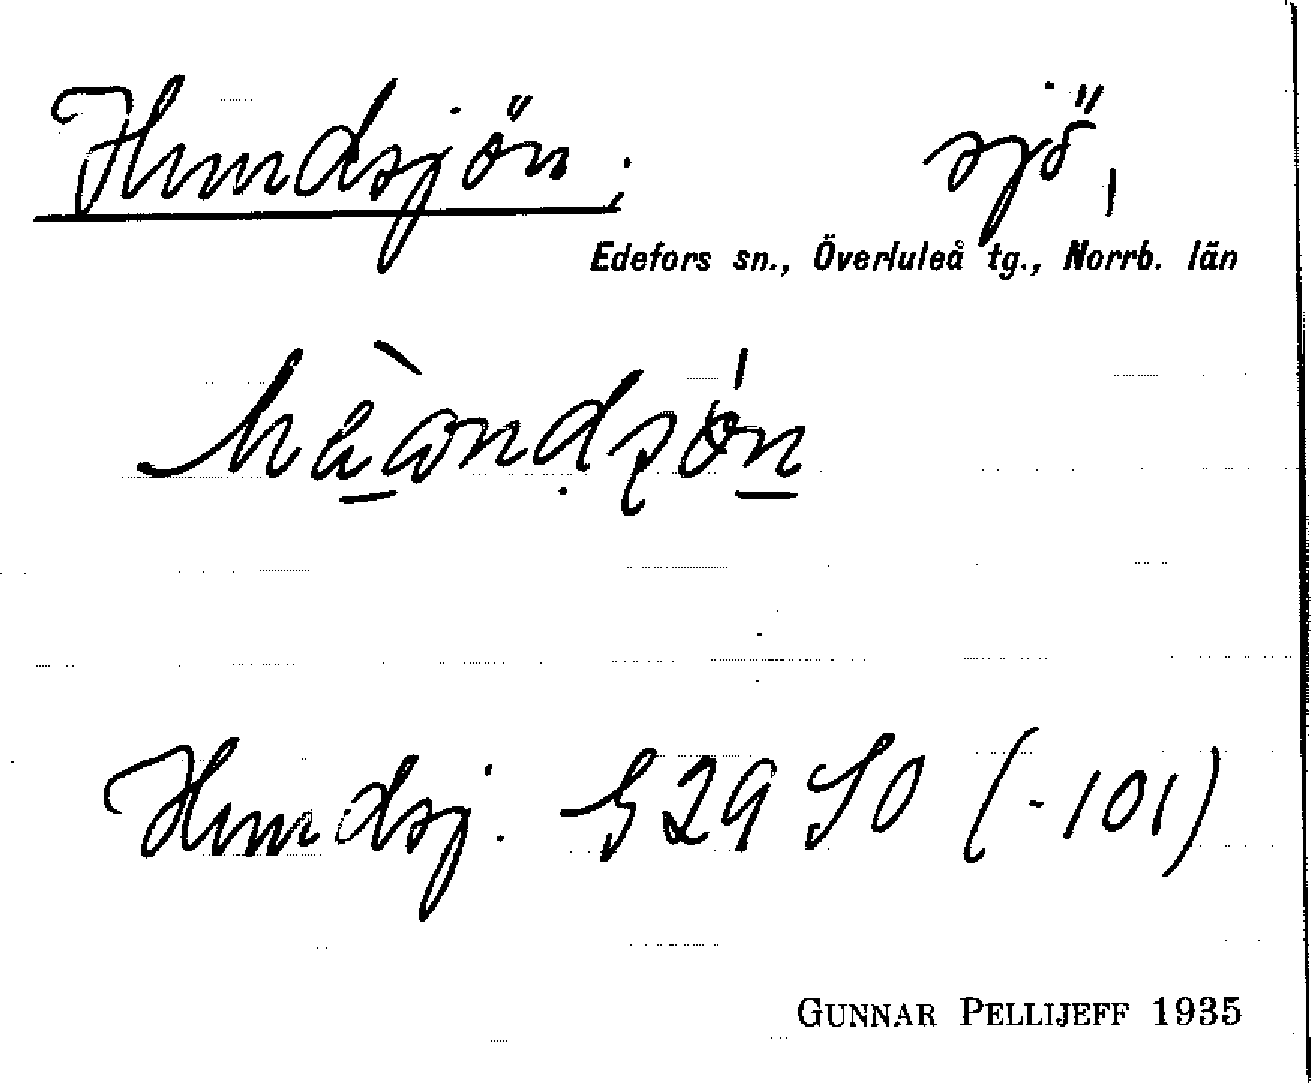 Hundsjön; sjö,
Edefors sn., Överluleå tg., Norrb. län
Hundsj. § 29 SO (-101)
GUNNAR PELLIJEFF 1935